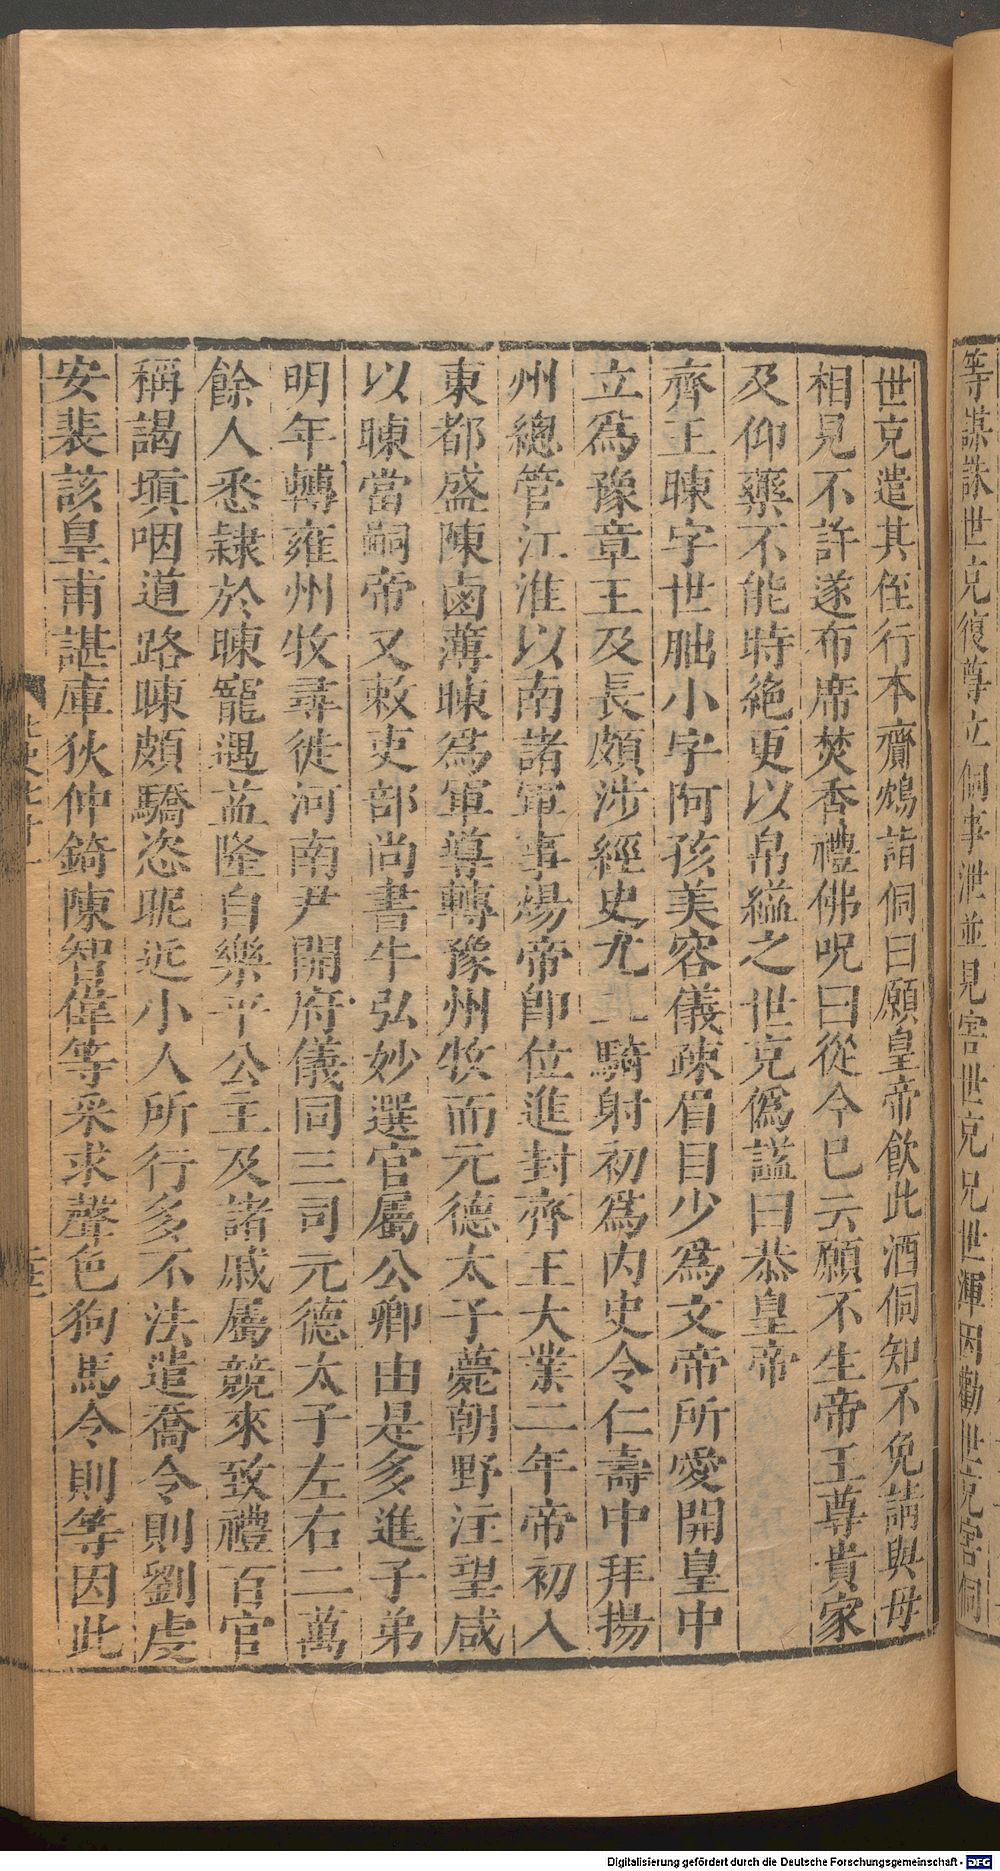 等謀誅世充復尊立侗事泄並見害世充兄世渾因勸世充害侗
世充遣其侄行本齎鴆詣侗曰願皇帝飲此酒侗知不免請與母
相見不許遂布席焚香禮佛呪曰從今已云願不生帝王尊貴家
及仰藥不能時絶更以帛縊之世充偽謚曰恭皇帝
齊王暕字世朏小字阿孩美容儀疎眉目少爲文帝所愛開皇中
立爲豫章王及長頗涉經史尤工騎射初爲内史令仁壽中拜揚
州總管江淮以南諸軍事煬帝卽位進封齊王大業二年帝初入
東都盛陳鹵薄暕爲軍導轉豫州牧而元德太子薨朝野注望咸
以暕當嗣帝又敕吏部尚書牛弘妙選官屬公卿由是多進子弟
明年轉雍州牧尋徙河南尹開府儀同三司元德太子左右二萬
餘人悉隷於暕寵遇益隆自樂平公主及諸戚屬競來致禮百官
稱謁塡咽道路暕頗驕恣昵近小人所行多不法遣喬令則劉虔
安裴該皇甫諶庫狄仲錡陳智偉等釆求聲色狗馬令則等因此
Digitalisierung gefördert durch die Deutsche Forschungsgemeinschaft - DFG